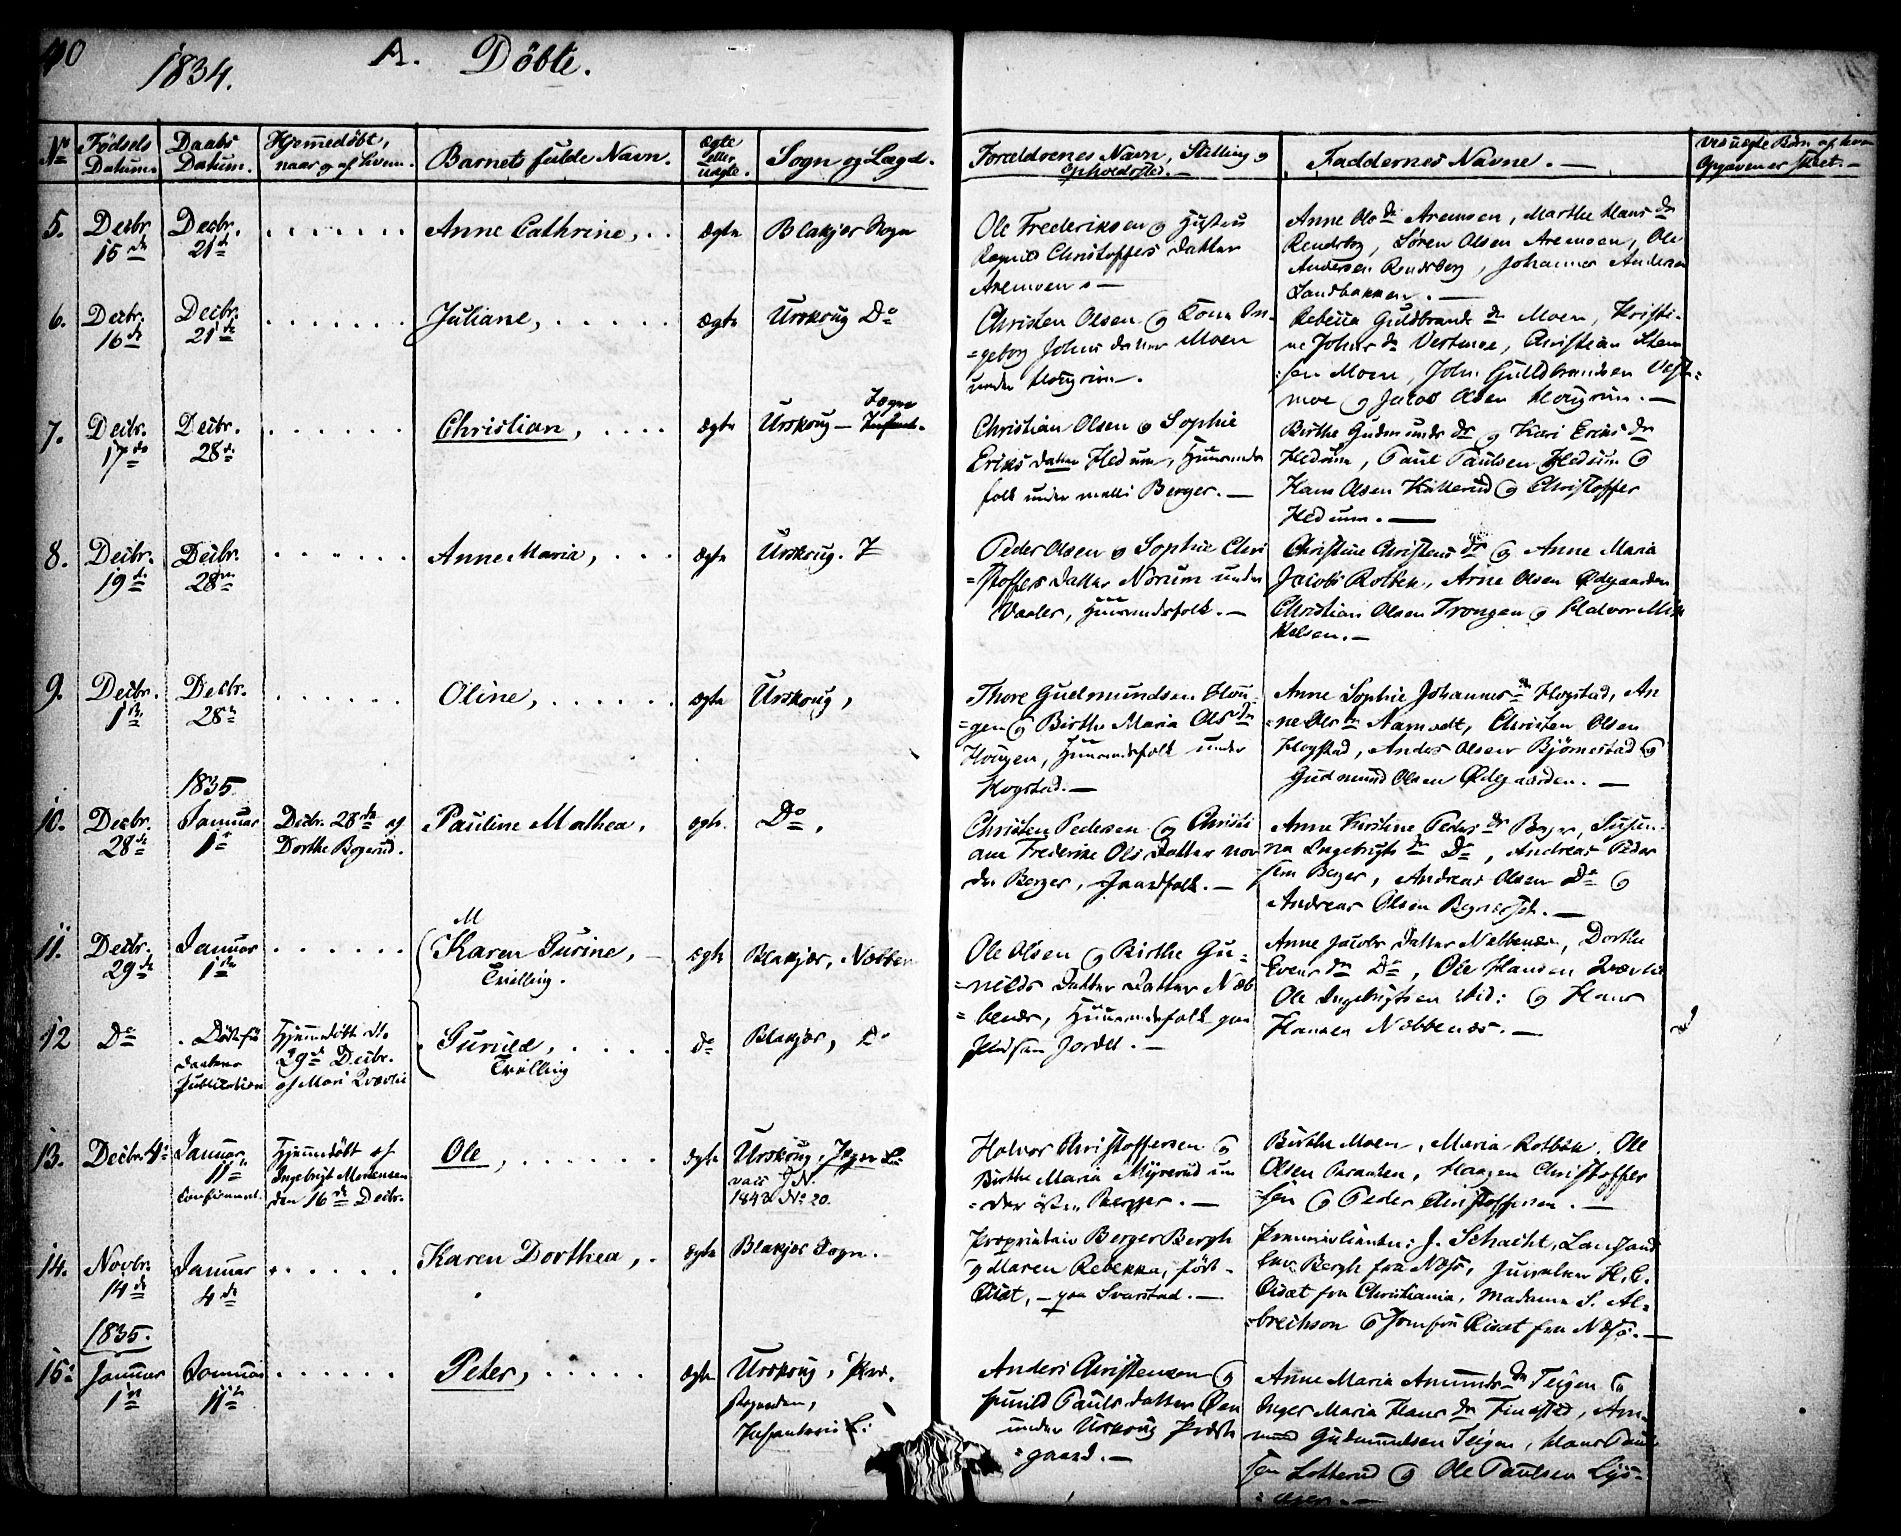 40
1834. A. Döbte.
No
Födsels Datum.
Daabs Datum.
Hjemmedöbt, naar og af hvem.
Barnets fulde Navn.
Ægte eller uægte.
Sogn og Lægd.
Forældrenes Navn, Stilling og Opholdssted.
Faddernes Navne.
Ved uægte Börn, af hvem Opgaven er skeet.
5. Decbr. 15de
Decbr. 21de
Anne Cathrine,
ægte
Blakjer Sogn
Ole Frederiksen og Hustru
Ragnild Christoffers Datter
Aremoen
Anne Ols Dr Aremoen, Marthe Hans Dr
Rendsbog, Sören Olsen Aremoen, Ole
Andersen Rendsborg, Johannes Andersen
Sandbakken.
6. Decbr. 16de
Decbr. 21de
Juliane,
ægte
Urskoug Do
Christen Olsen og Kone In-
=geborg Johns Datter Moen
under Hougrim.
Rebecca Guldbrands Dr Moen, Kristi-
ne Johns Dr Vestmoe, Christian
sen Moen, John Guldbrandsen Vest=
moe og Jacob Olsen Hougrim.
7. Decbr. 17de
Decbr. 28de
Christian,
ægte
Urskoug
Christian Olsen og Sophie
Eriks Datter Hedum, Huusmands
folk under melli Berger.
Birthe Gudmunds Dr og Kari Eriks Dr
Hedum, Paul Paulsen Hedum og
Hans Olsen Killerud og Christoffer
Hedum.
8. Decbr. 19de
Decbr. 28de
Anne Maria,
ægte
Urskoug.
Peder Olsen og Sophie Chri
=stoffers Datter Norum under
Vaaler, Huusmandsfolk.
Christine Christens Dr og Anne Maria
Jacobs Rolbek, Arne Olsen Ødegaarden
Christian Olsen Trongen og Halvor Mik
kelsen.
9. Decbr. 1ste
Decbr. 28de
Oline,
ægte
Urskoug,
Thore Gudmundsen Hou-
=gen og Birthe Maria Ols Dr
Hougen, Huusmandsfolk under
Hogstad.
Anne Sophie Johannes Dr Hogstad, An
=ne Ols Dr Namvedt, Christen Olsen
Hogstad, Anders Olsen Björnestad og
Gudmund Olsen Ødegaarden.
1835
10. Decbr. 28de
Januar 1ste
Decbr. 28de af
Dorthe Bogerud.
Pauline Mathea,
ægte.
Do,
Christen Pedersen og Christi
ane Frederike Ols Datter nor
dre Berger, Gaardfolk.
Anne Kirstine Peders Dr Berger, Susan-
na Ingebrigts Dr Do, Andreas Peder
sen Berger, Andreas Olsen Do og
Andreas Olsen
11. Decbr. 29de
Januar 1ste
M
Karen Surine,
Tvilling.
ægte
Blakjer,
Ole Olsen og Birthe Gu-
=nilds Datter Datter Næb
=benæs, Huusmandsfolk paa
Jordet.
Anne Jacobs Datter Nebbenæs, Dorthe
Evens Dr Do, Ole Hansen
Ole Ingebrigtsen ibid: og Hans
Hansen Næbbenæs.
12 Do
Död för
Daabens
publication
Hjemmedöbt d.
29de Decbr.
af Mari
Gunild,
Tvilling
do
Blakjer, Do
13. Decbr. 4de
Januar, 11te
Confirmat.
Hjemmedöbt af
Ingebrigt Mortensen
den 16de Decbr.
Ole,
ægte
Urskoug,
1843 No 20.
Halvor Christoffersen og
Birthe Maria Myrerud un
=der östre Berger.
Birthe Moen, Maria Rolbek, Ole
Olsen Braaten, Haagen Christoffer
sen og Peder Christoffersen.
14. Novbr. 14de
Januar 4de
Karen Dorthea,
ægte
Blakjer Sogn.
Proprietair Berger Bergh
og Maren Rebekka, född
Qvist, – paa Svarstad.
Premierlieutn: J. Schacht,
Bergh fra Næss, H. C.
Qvist fra Christiania, Madame S. Al-
=brechson og Jomfru Qvist fra Næss.
1835.
15. Januar 1ste
Januar 11te
Peter,
ægte
Urskoug,
Infanterie L:
Anders Christensen og
Gunild Pauls Datter Øen
under Urskoug Præste
=gaard.
Anne Maria Amunds Dr Teigen og
Inger Maria Hans Dr Finstad, Am-
mund Gudmundsen Teigen, Hans Paul
sen Lotterud og Ole Paulsen